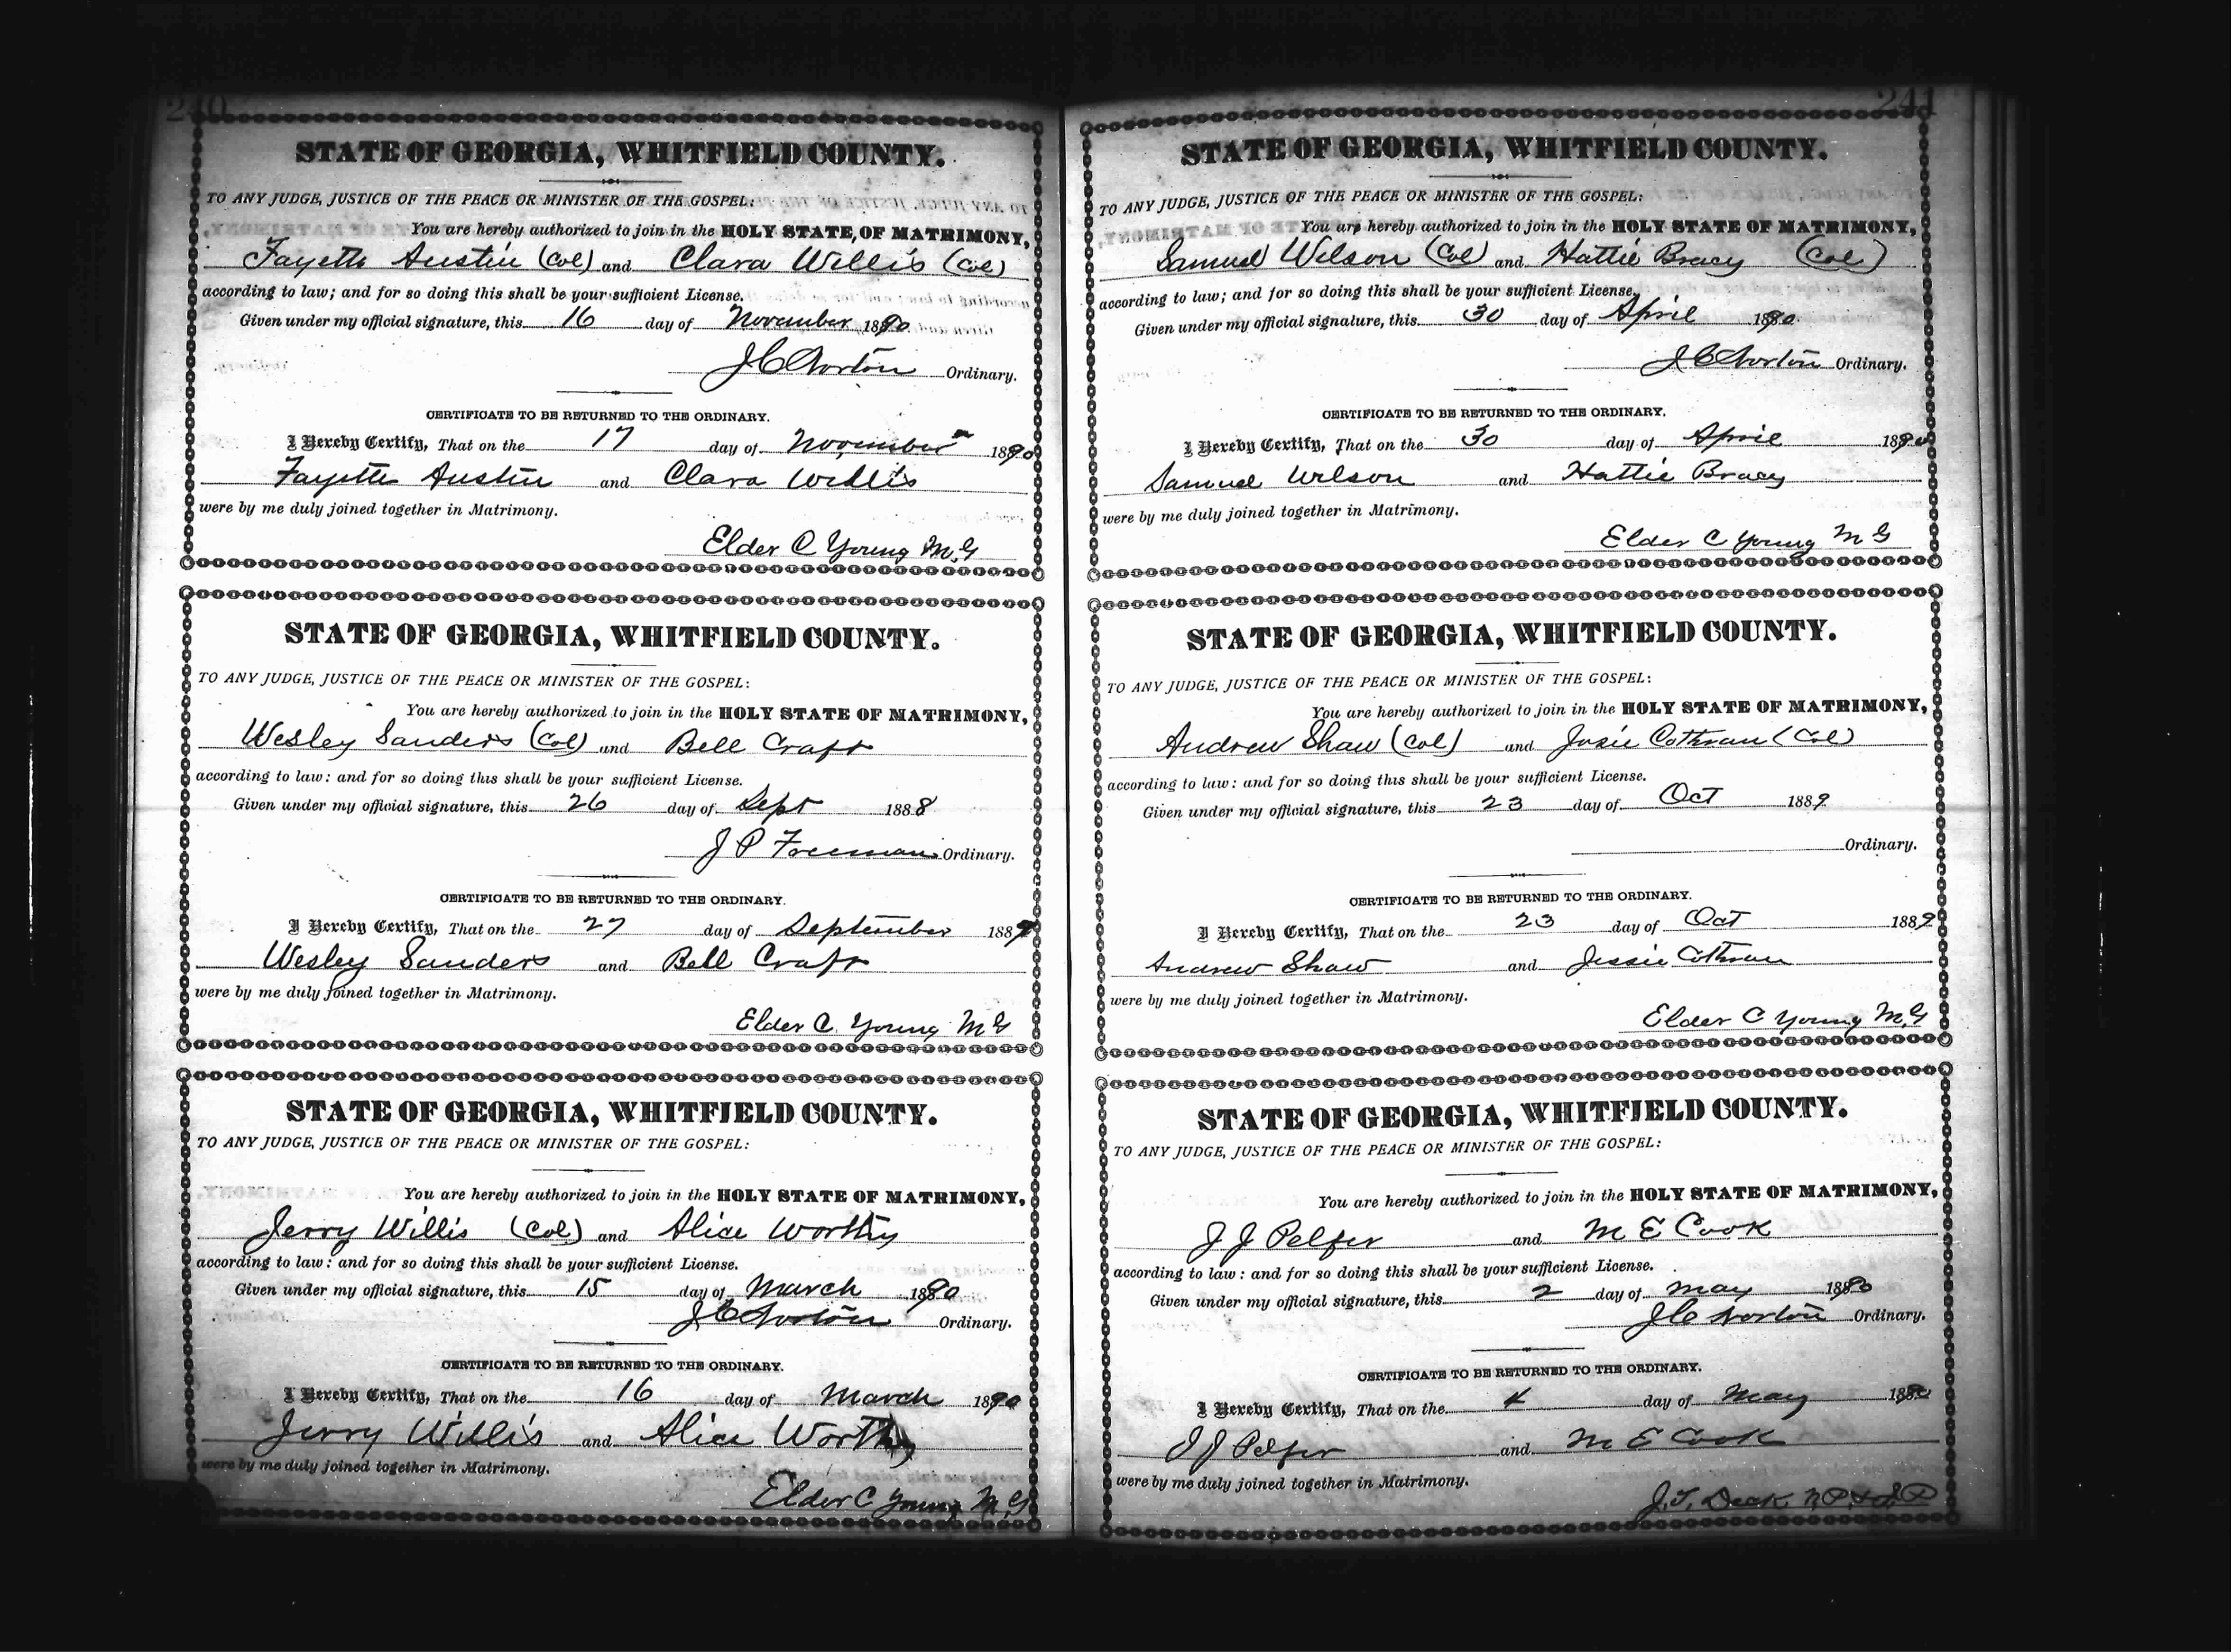 240
STATE OF GEORGIA, WHITFIELD COUNTY.
TO ANY JUDGE, JUSTICE OF THE PEACE OR MINISTER OF THE GOSPEL:
You are hereby authorized to join in the HOLY STATE OF MATRIMONY,
Fayette Austin (Col) and Clara Willis (Col)
according to law; and for so doing this shall be your sufficient License.
Given under my official signature, this 16 day of November 1890
J C Norton Ordinary.
CERTIFICATE TO BE RETURNED TO THE ORDINARY.
I Hereby Certify, That on the 17 day of November 1890
Fayette Austin and Clara Willis
were by me duly joined together in Matrimony.
Elder C Young M.G
STATE OF GEORGIA, WHITFIELD COUNTY.
TO ANY JUDGE, JUSTICE OF THE PEACE OR MINISTER OF THE GOSPEL:
You are hereby authorized to join in the HOLY STATE OF MATRIMONY,
Wesley Sanders (Col) and Bell Craft
according to law: and for so doing this shall be your sufficient License.
Given under my official signature, this 26 day of Sept 1888
J P Freeman Ordinary.
CERTIFICATE TO BE RETURNED TO THE ORDINARY.
I Hereby Certify, That on the 27 day of September 1889
Wesley Sanders and Bell Craft
were by me duly joined together in Matrimony.
Elder C. Young M G
STATE OF GEORGIA, WHITFIELD COUNTY.
TO ANY JUDGE, JUSTICE OF THE PEACE OR MINISTER OF THE GOSPEL:
You are hereby authorized to join in the HOLY STATE OF MATRIMONY,
Jerry Willis (Col) and Alice Worthy
according to law: and for so doing this shall be your sufficient License.
Given under my official signature, this 15 day of March 1890
J C Norton Ordinary.
CERTIFICATE TO BE RETURNED TO THE ORDINARY.
I Hereby Certify, That on the 16 day of March 1890
Jerry Willis and Alice Worthy
were by me duly joined together in Matrimony.
Elder C Young M.G
241
STATE OF GEORGIA, WHITFIELD COUNTY.
TO ANY JUDGE, JUSTICE OF THE PEACE OR MINISTER OF THE GOSPEL:
You are hereby authorized to join in the HOLY STATE OF MATRIMONY,
Samuel Wilson (Col) and Hattie Bracy (Col)
according to law; and for so doing this shall be your sufficient License.
Given under my official signature, this 30 day of April 1890
J C Norton Ordinary.
CERTIFICATE TO BE RETURNED TO THE ORDINARY.
I Hereby Certify, That on the 30 day of April 1890
Samuel Wilson and Hattie Bracy
were by me duly joined together in Matrimony.
Elder C Young M G
STATE OF GEORGIA, WHITFIELD COUNTY.
TO ANY JUDGE, JUSTICE OF THE PEACE OR MINISTER OF THE GOSPEL:
You are hereby authorized to join in the HOLY STATE OF MATRIMONY,
Andrew Shaw (Col) and Josie Cothran (Col)
according to law: and for so doing this shall be your sufficient License.
Given under my official signature, this 23 day of Oct 1889
Ordinary.
CERTIFICATE TO BE RETURNED TO THE ORDINARY.
I Hereby Certify, That on the 23 day of Oct 1889
Andrew Shaw and Jessie Cothran
were by me duly joined together in Matrimony.
Elder C Young M.G
STATE OF GEORGIA, WHITFIELD COUNTY.
TO ANY JUDGE, JUSTICE OF THE PEACE OR MINISTER OF THE GOSPEL:
You are hereby authorized to join in the HOLY STATE OF MATRIMONY,
J J Pelfer and M E Cook
according to law: and for so doing this shall be your sufficient License.
Given under my official signature, this 2 day of May 1890
J C Norton Ordinary.
CERTIFICATE TO BE RETURNED TO THE ORDINARY.
I Hereby Certify, That on the 4 day of May 1890
J J Pelfer and M E Cook
were by me duly joined together in Matrimony.
J. T. Deck N P & J P